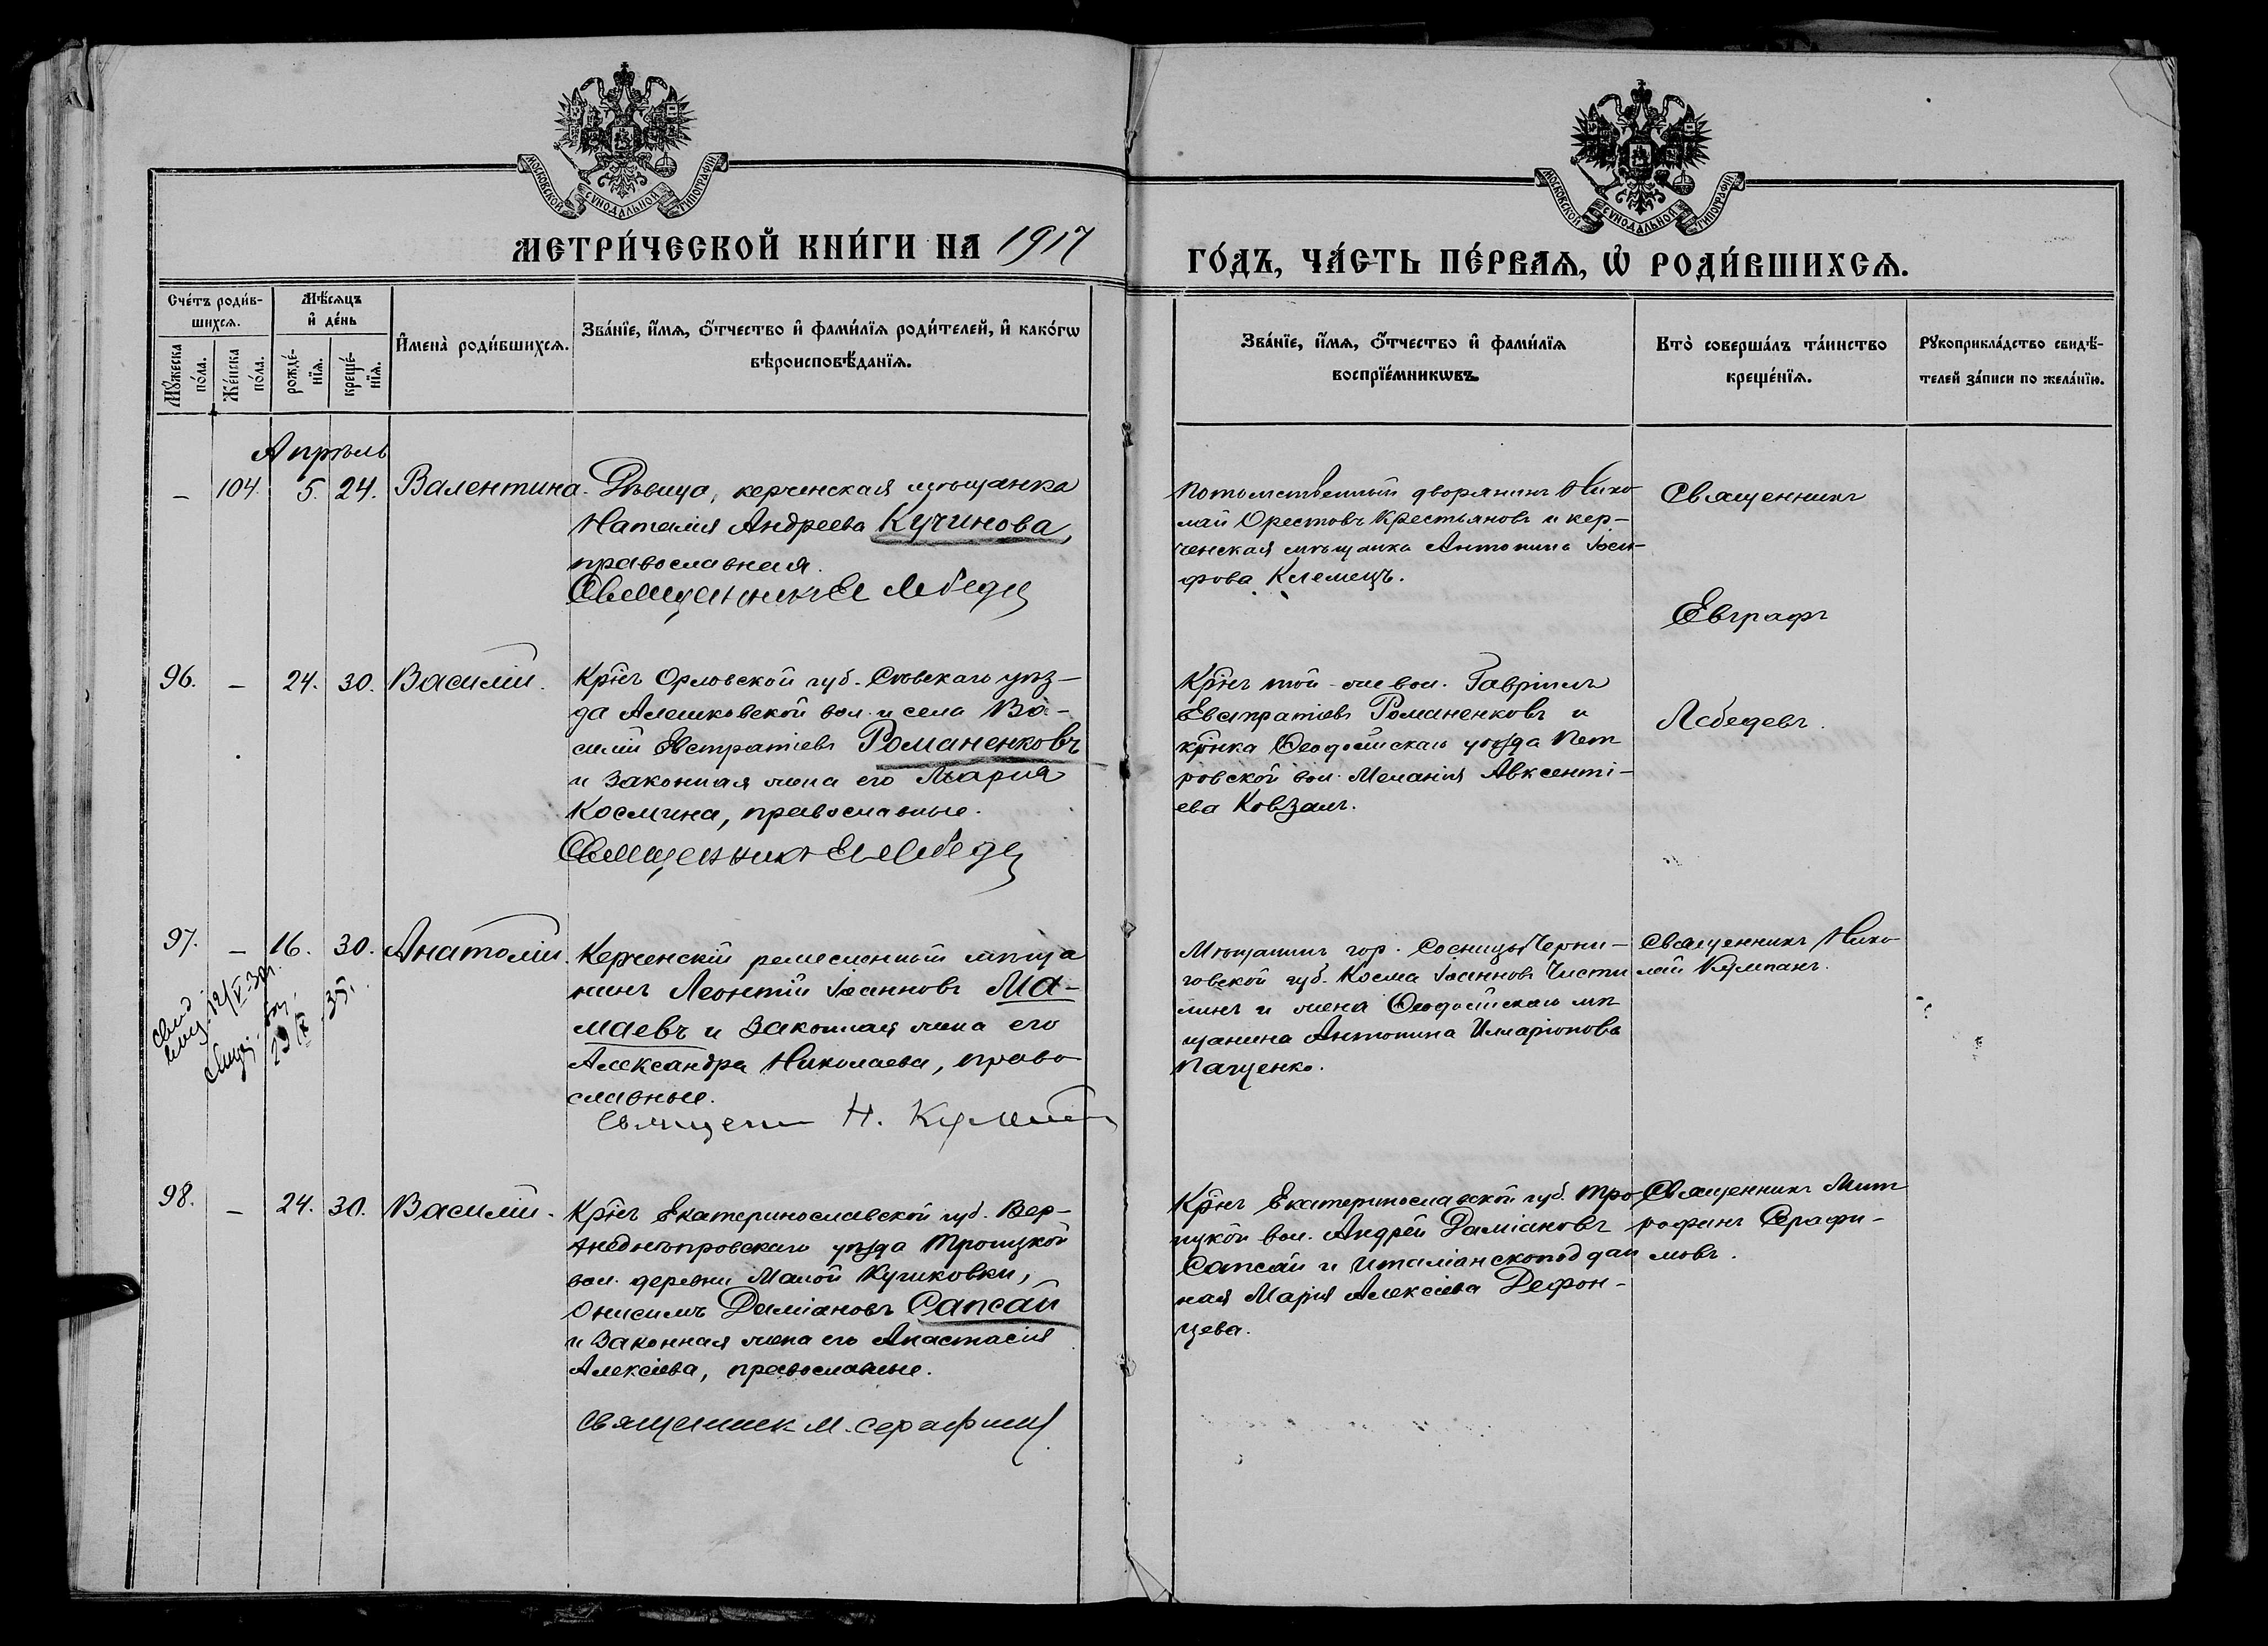 МОСКОВСКОЙ СѴНОДАЛЬНОЙ ТИПОГРАФІИ
МОСКОВСКОЙ СѴНОДАЛЬНОЙ ТИПОГРАФІИ
МЕТРИ́ЧЕСКОЙ КНИ́ГИ НА 1917
ГО́ДЪ, ЧА́СТЬ ПЕ́РВАѦ, Ѡ҆ РОДИ́ВШИХСѦ.
Сче́тъ роди́в-
шихсѧ.
Мꙋ́жеска
по́ла.
Же́нска
по́ла.
Мѣ́сѧцъ
и҆ де́нь
рожде́-
нїѧ.
креще́-
нїѧ.
И҆мена̀ роди́вшихсѧ.
Зва́нїе, и҆́мѧ, ѻ҆́тчество и҆ фами́лїѧ роди́телей, и҆ како́гѡ
вѣроисповѣ́данїѧ.
Зва́нїе, и҆́мѧ, ѻ҆́тчество и҆ фами́лїѧ
воспрїе́мникѡвъ.
Кто̀ соверша́лъ та́инство
креще́нїѧ.
Рꙋкоприкла́дство свидѣ́-
телей за́писи по жела́нїю.
Апрѣль
– 104. 5. 24. Валентина.
Дѣвица, керченская мѣщанка
Наталія Андреева Кучинова,
православная.
Священникъ Ев Лебеде
Потомственный дворянинъ Нико
лай Орестовъ Крестьяновъ и кер-
ченская мѣщанка Антонина Іоси-
фова Клемецъ.
Священникъ
Евграфъ
Лебедевъ.
96. – 24. 30. Василій.
Кр̃нъ Орловской губ. Сѣвскаго уѣз-
да Алешковской вол. и села Ва-
силій Евстратіевъ Романенковъ
и законная жена его Марія
Космина, православные.
Священникъ Ев Лебеде
Кр̃нъ той-же вол. Гавріилъ
Евстратіевъ Романенковъ и
кр̃нка Ѳеодосійскаго уѣзда Пет
ровской вол. Меланія Авксенті-
ева Ковзанъ.
97. – 16. 30. Анатолій.
Керченскій ремесленный мѣща
нинъ Леонтій Іоанновъ Ма-
маевъ и законная жена его
Александра Николаева, право
славные.
Священник Н. Кумпан
Мѣщанинъ гор. Сосницы Черни-
говской губ. Косма Іоанновъ Чисти
линъ и жена Ѳеодосійскаго мѣ
щанина Антонина Илларіонова
Пащенко.
Священникъ Нико
лай Кумпанъ.
98. – 24. 30. Василій.
Кр̃нъ Екатеринославской губ. Вер-
хнеднѣпровскаго уѣзда Троицкой
вол. деревни Малой Кучиковки,
Онисимъ Даміановъ Сапсай
и законная жена его Анастасія
Алексіева, православные.
Священник М. Серафим
Кр̃нъ Екатеринославской губ. Тро
ицкой вол. Андрей Даміановъ
Сапсай и италіанскоподдан
ная Марія Алексіева Дефон-
цева.
Священникъ Мит
рофанъ Серафи-
мовъ.